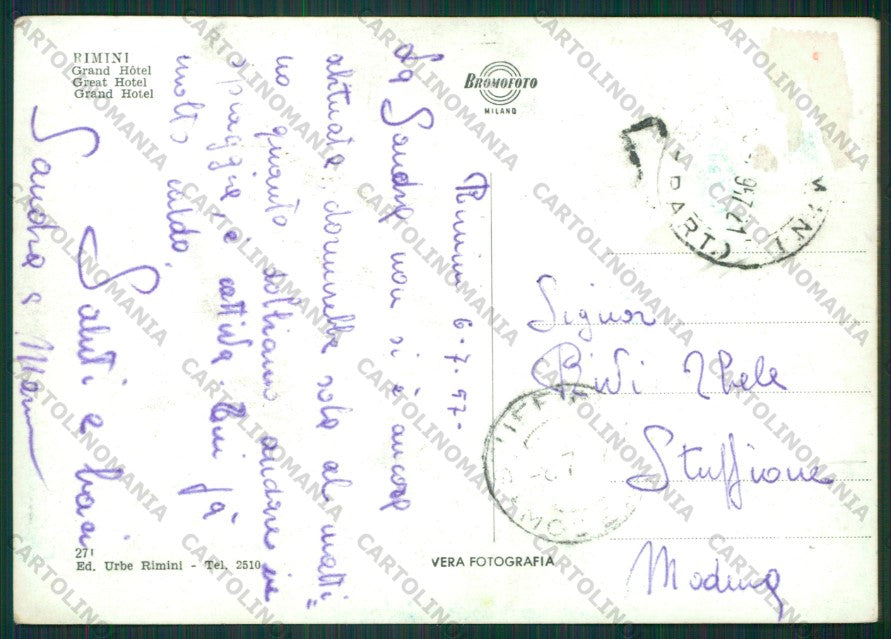 RIMINI
Grand Hôtel
Great Hotel
Grand Hotel
BROMOFOTO
MILANO
Rimini 6-7-57-
La Sandra non si è ancora
abituata, dormirebbe solo al matti=
no quando dobbiamo andare in
spiaggia, è cattiva. Qui fà
molto caldo,
Saluti e baci
Sandra e
Signor
Bibi Ebele
Stuffione
Modena
271
Ed. Urbe Rimini - Tel. 2510
VERA FOTOGRAFIA
CARTOLINOMANIA